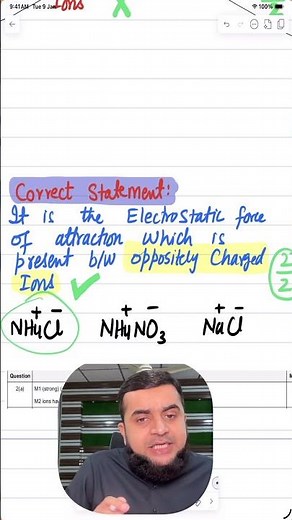 9:41AM Tue 9 Jan
100%
Ions
X
Correct Statement:
It is the Electrostatic force
of attraction which is
present b/w oppositely Charged
Ions ✓
+ - + - + -
NH4Cl NH4NO3 NaCl
Question
2(a) M1 (strong)
M2 ions ha